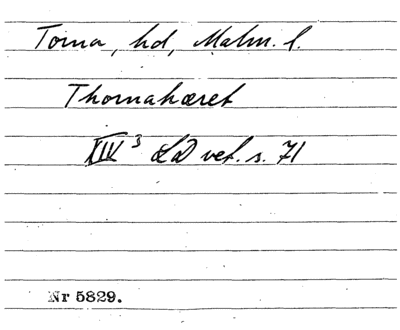 Torna, hd, Malm. l.
Thornahæret
XIV³ LD vet. s. 71
Nr 5829.